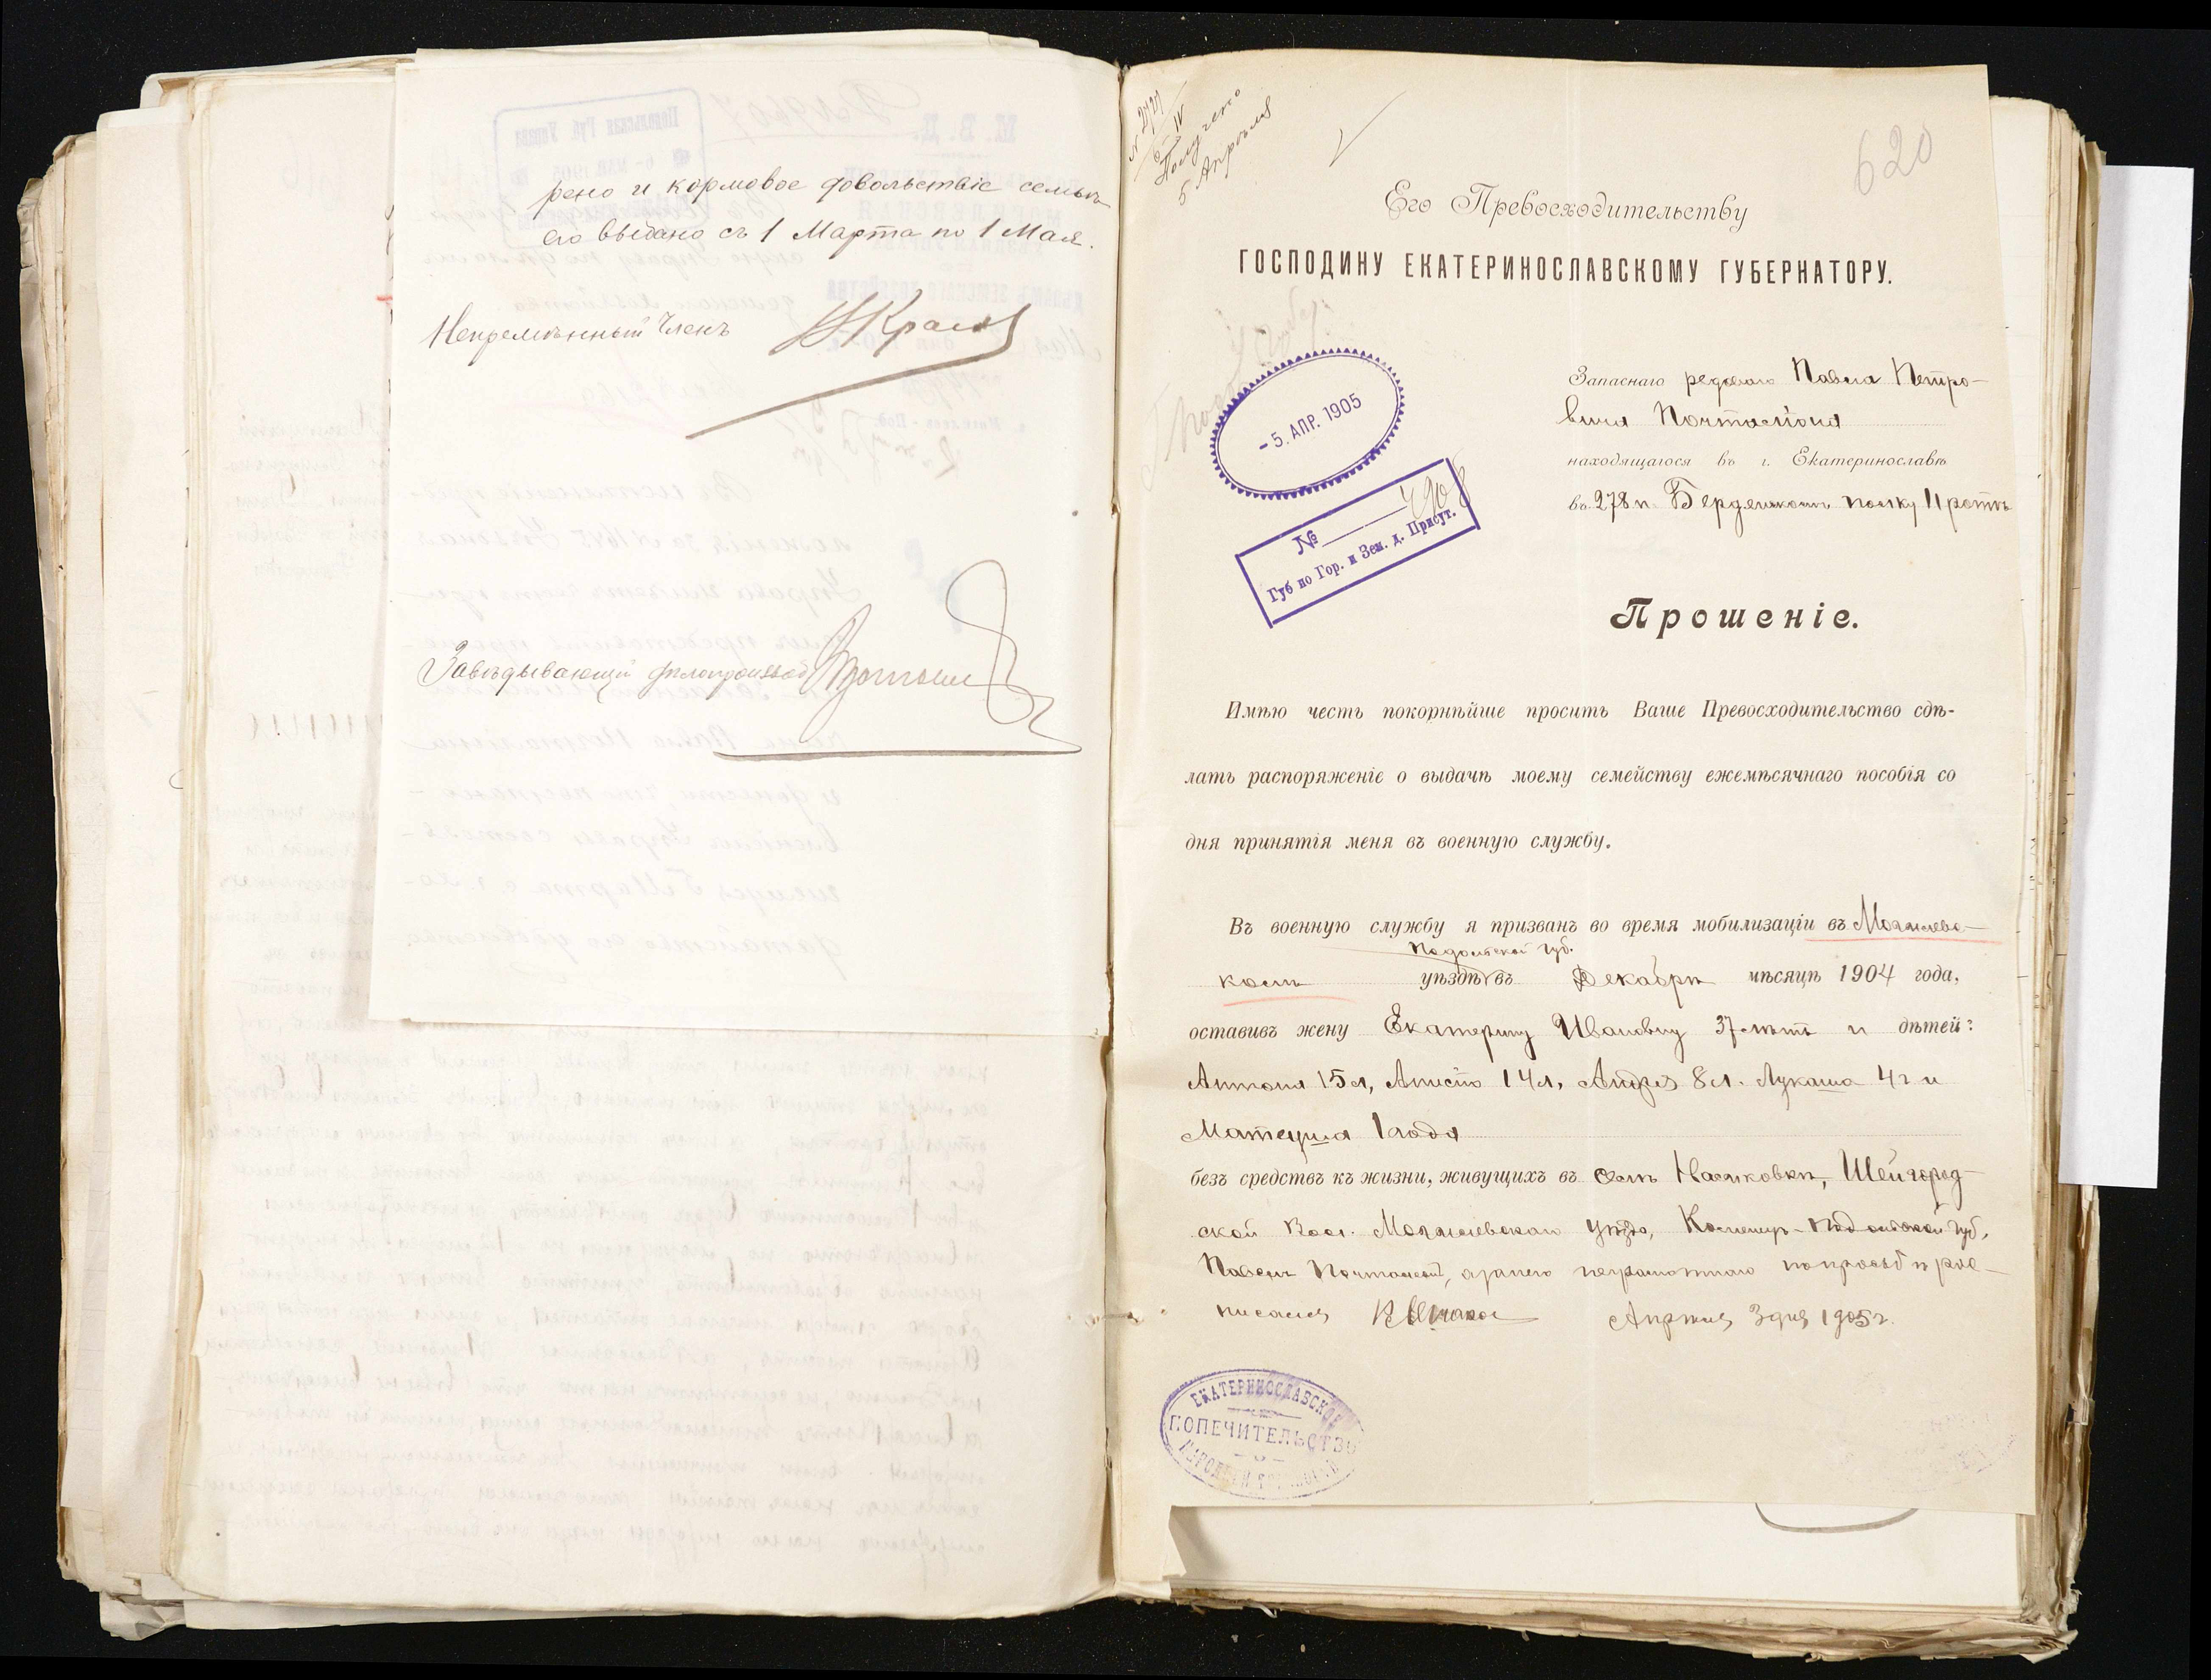 рено и кормовое довольствіе семьѣ
его выдано съ 1 Марта по 1 Мая.
Непремѣнный Членъ
Завѣдывающій дѣлопроизвод
Получено
5 Апрѣля
620
Его Превосходительству
ГОСПОДИНУ ЕКАТЕРИНОСЛАВСКОМУ ГУБЕРНАТОРУ.
- 5. АПР. 1905
№
Губ по Гор. и Зем. д. Присут.
Запаснаго рядового Павла Петро-
вича
находящагося въ г. Екатеринославѣ
въ 278 п. Бердянскомъ полку 11 ротѣ
Прошеніе.
Имѣю честь покорнѣйше просить Ваше Превосходительство сдѣ-
лать распоряженіе о выдачѣ моему семейству ежемѣсячнаго пособія со
дня принятія меня въ военную службу.
Въ военную службу я призванъ во время мобилизаціи въ Могилевс-
Подольской губ.
комъ уѣздѣ въ Декабрѣ мѣсяцѣ 1904 года,
оставивъ жену Екатерину Ивановну 37 лѣтъ и дѣтей:
Антона 15 л, 14 л, Андрея 8 л. Лукаша 4 г и
Матеуша 1 года
безъ средствъ къ жизни, живущихъ въ селѣ
ской Вол. Могилевскаго уѣзда, Подольской губ.
Павелъ а за него неграмотнаго по просьбѣ рос-
писался Апрѣля 3 дня 1905 г.
ЕКАТЕРИНОСЛАВСКОЕ
ПОПЕЧИТЕЛЬСТВО